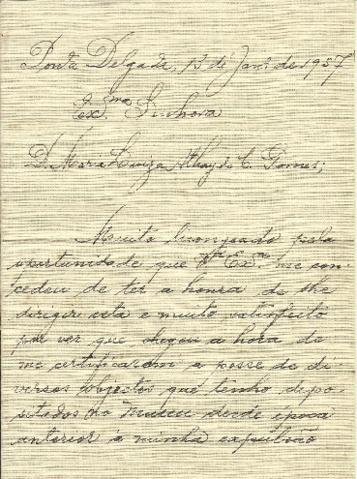 Ponta Delgada, 13 de Janº de 1957
Ex.ma Senhora
D. Maria Luiza Athayde C. Gomes;
Muito lisongeado pela
oportunidade que V. Ex.a me con-
cedeu de ter a honra de lhe
dirigir esta e muito satisfeito
por ver que chegou a hora de
me certificarem a posse de di-
versos objectos que tenho depo-
sitados no Museu desde época
anterior á minha expulsão